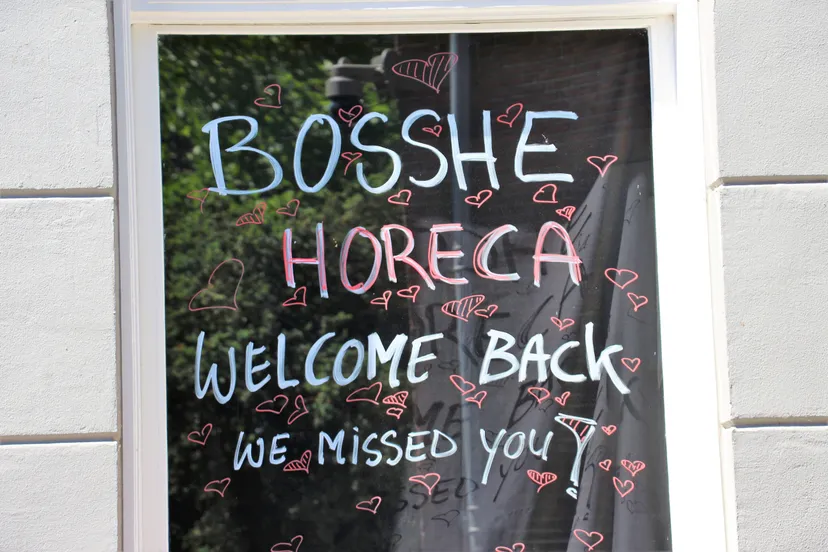 BOSSHE
HORECA
WELCOME BACK
WE MISSED YOU!